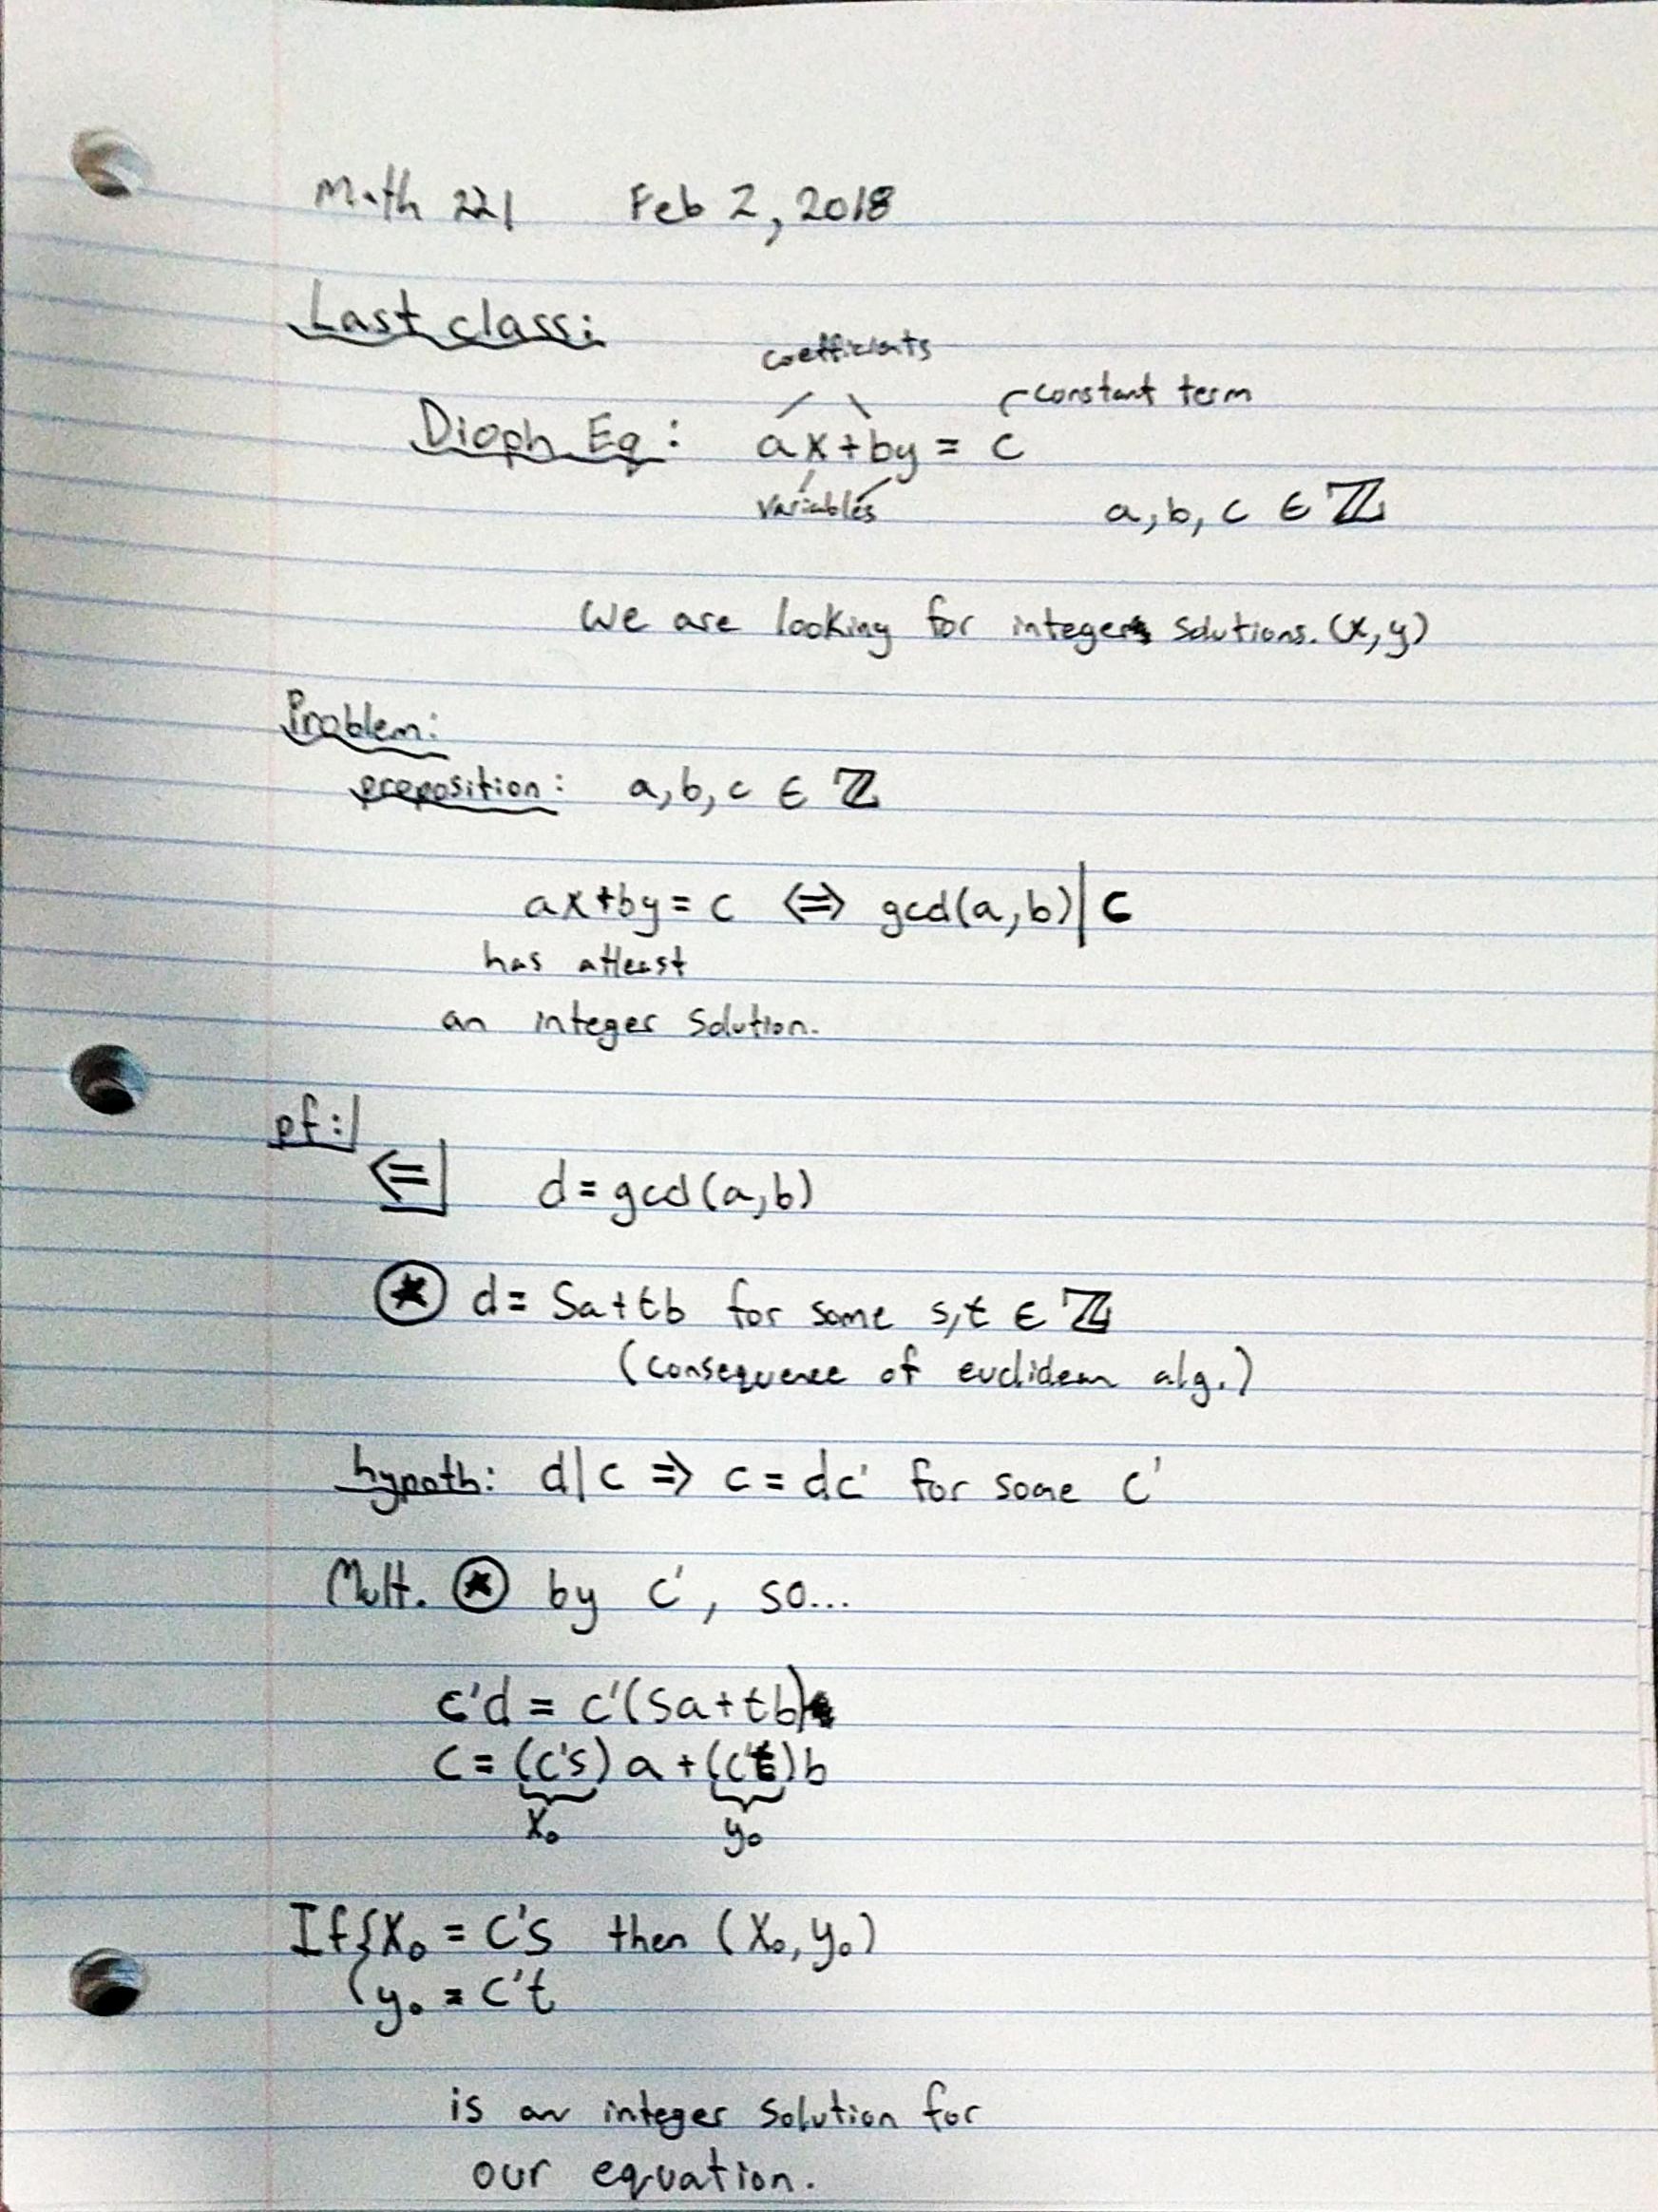 Math 221 Feb 2, 2018
Last class:
coefficients
constant term
Dioph Eq: ax+by = c
variables
a, b, c ∈ ℤ
We are looking for integer solutions. (x,y)
Problem:
proposition: a, b, c ∈ ℤ
ax+by = c ⟺ gcd(a,b) | c
has atleast
an integer solution.
pf:
⟸ d = gcd(a,b)
⊛ d = sa+tb for some s,t ∈ ℤ
(consequence of euclidean alg.)
hypoth: d|c ⇒ c = dc' for some c'
Mult. ⊛ by c', so...
c'd = c'(sa+tb)
c = (c's)a + (c't)b
x₀ y₀
If { x₀ = c's then (x₀, y₀)
y₀ = c't
is an integer solution for
our equation.